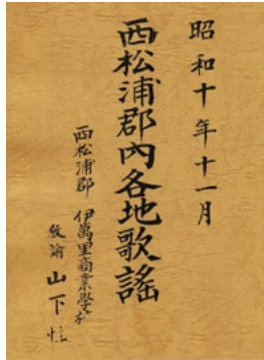 昭和十年十一月
西松浦郡内各地歌謡
西松浦郡 伊萬里商業學校
教諭 山下